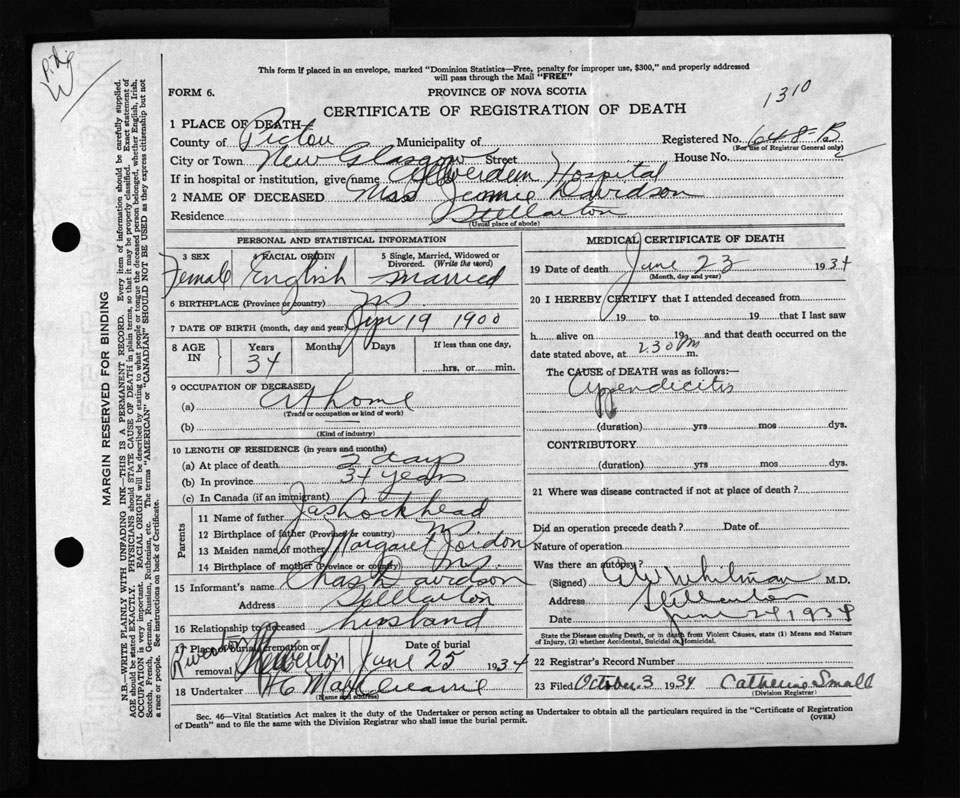 This form if placed in an envelope, marked "Dominion Statistics—Free, penalty for improper use, $300," and properly addressed
will pass through the Mail "FREE"
FORM 6.
PROVINCE OF NOVA SCOTIA
1310
CERTIFICATE OF REGISTRATION OF DEATH
1 PLACE OF DEATH
County of Pictou Municipality of Registered No. 648-B
(For use of Registrar General only)
City or Town New Glasgow Street House No.
If in hospital or institution, give name Aberdeen Hospital
2 NAME OF DECEASED Mrs Jennie Davidson
Residence Stellarton
(Usual place of abode)
PERSONAL AND STATISTICAL INFORMATION
3 SEX 4 RACIAL ORIGIN 5 Single, Married, Widowed or Divorced. (Write the word)
Female English Married
6 BIRTHPLACE (Province or country) NS
7 DATE OF BIRTH (month, day and year) Apr 19 1900
8 AGE IN Years Months Days If less than one day,
34 hrs. or min.
9 OCCUPATION OF DECEASED
(a) At home
(Trade or occupation or kind of work)
(b)
(Kind of industry)
10 LENGTH OF RESIDENCE (in years and months)
(a) At place of death 2 days
(b) In province 34 years
(c) In Canada (if an immigrant)
Parents
11 Name of father Jas Lockhead
12 Birthplace of father (Province or country) NS
13 Maiden name of mother Margaret Jordon
14 Birthplace of mother (Province or country) NS
15 Informant's name Chas Davidson
Address Stellarton
16 Relationship to deceased husband
17 Place of burial, cremation or removal Date of burial
June 25 1934
18 Undertaker
(Name and address)
MEDICAL CERTIFICATE OF DEATH
19 Date of death June 23 1934
(Month, day and year)
20 I HEREBY CERTIFY that I attended deceased from
19 to 19 that I last saw
h alive on 19 and that death occurred on
date stated above, at 2.30 PM m.
The CAUSE of DEATH was as follows:—
Appendicitis
(duration) yrs mos dys.
CONTRIBUTORY
(duration) yrs mos dys.
21 Where was disease contracted if not at place of death?
Did an operation precede death? Date of
Nature of operation
Was there an autopsy?
(Signed) Whitman M.D.
Address Stellarton
Date June 24 1934
State the Disease causing Death, or in death from Violent Causes, state (1) Means and Nature
of Injury, (2) whether Accidental, Suicidal or Homicidal.
22 Registrar's Record Number
23 Filed October 3 1934 Catherine Small
(Division Registrar)
Sec. 46—Vital Statistics Act makes it the duty of the Undertaker or person acting as Undertaker to obtain all the particulars required in the "Certificate of Registration
of Death" and to file the same with the Division Registrar who shall issue the burial permit. (OVER)
MARGIN RESERVED FOR BINDING
N.B.—WRITE PLAINLY WITH UNFADING INK—THIS IS A PERMANENT RECORD. Every item of information should be carefully supplied.
AGE should be stated EXACTLY. PHYSICIANS should STATE CAUSE OF DEATH in plain terms, so that it may be properly classified. Exact statement of
OCCUPATION is very important. RACIAL ORIGIN will be described by stating to what people or tongue the deceased person belonged, whether English, Irish,
Scotch, French, German, Russian, Ruthenian, etc. The terms "AMERICAN" or "CANADIAN" SHOULD NOT BE USED as they express citizenship but not
a race or people. See instructions on back of Certificate.